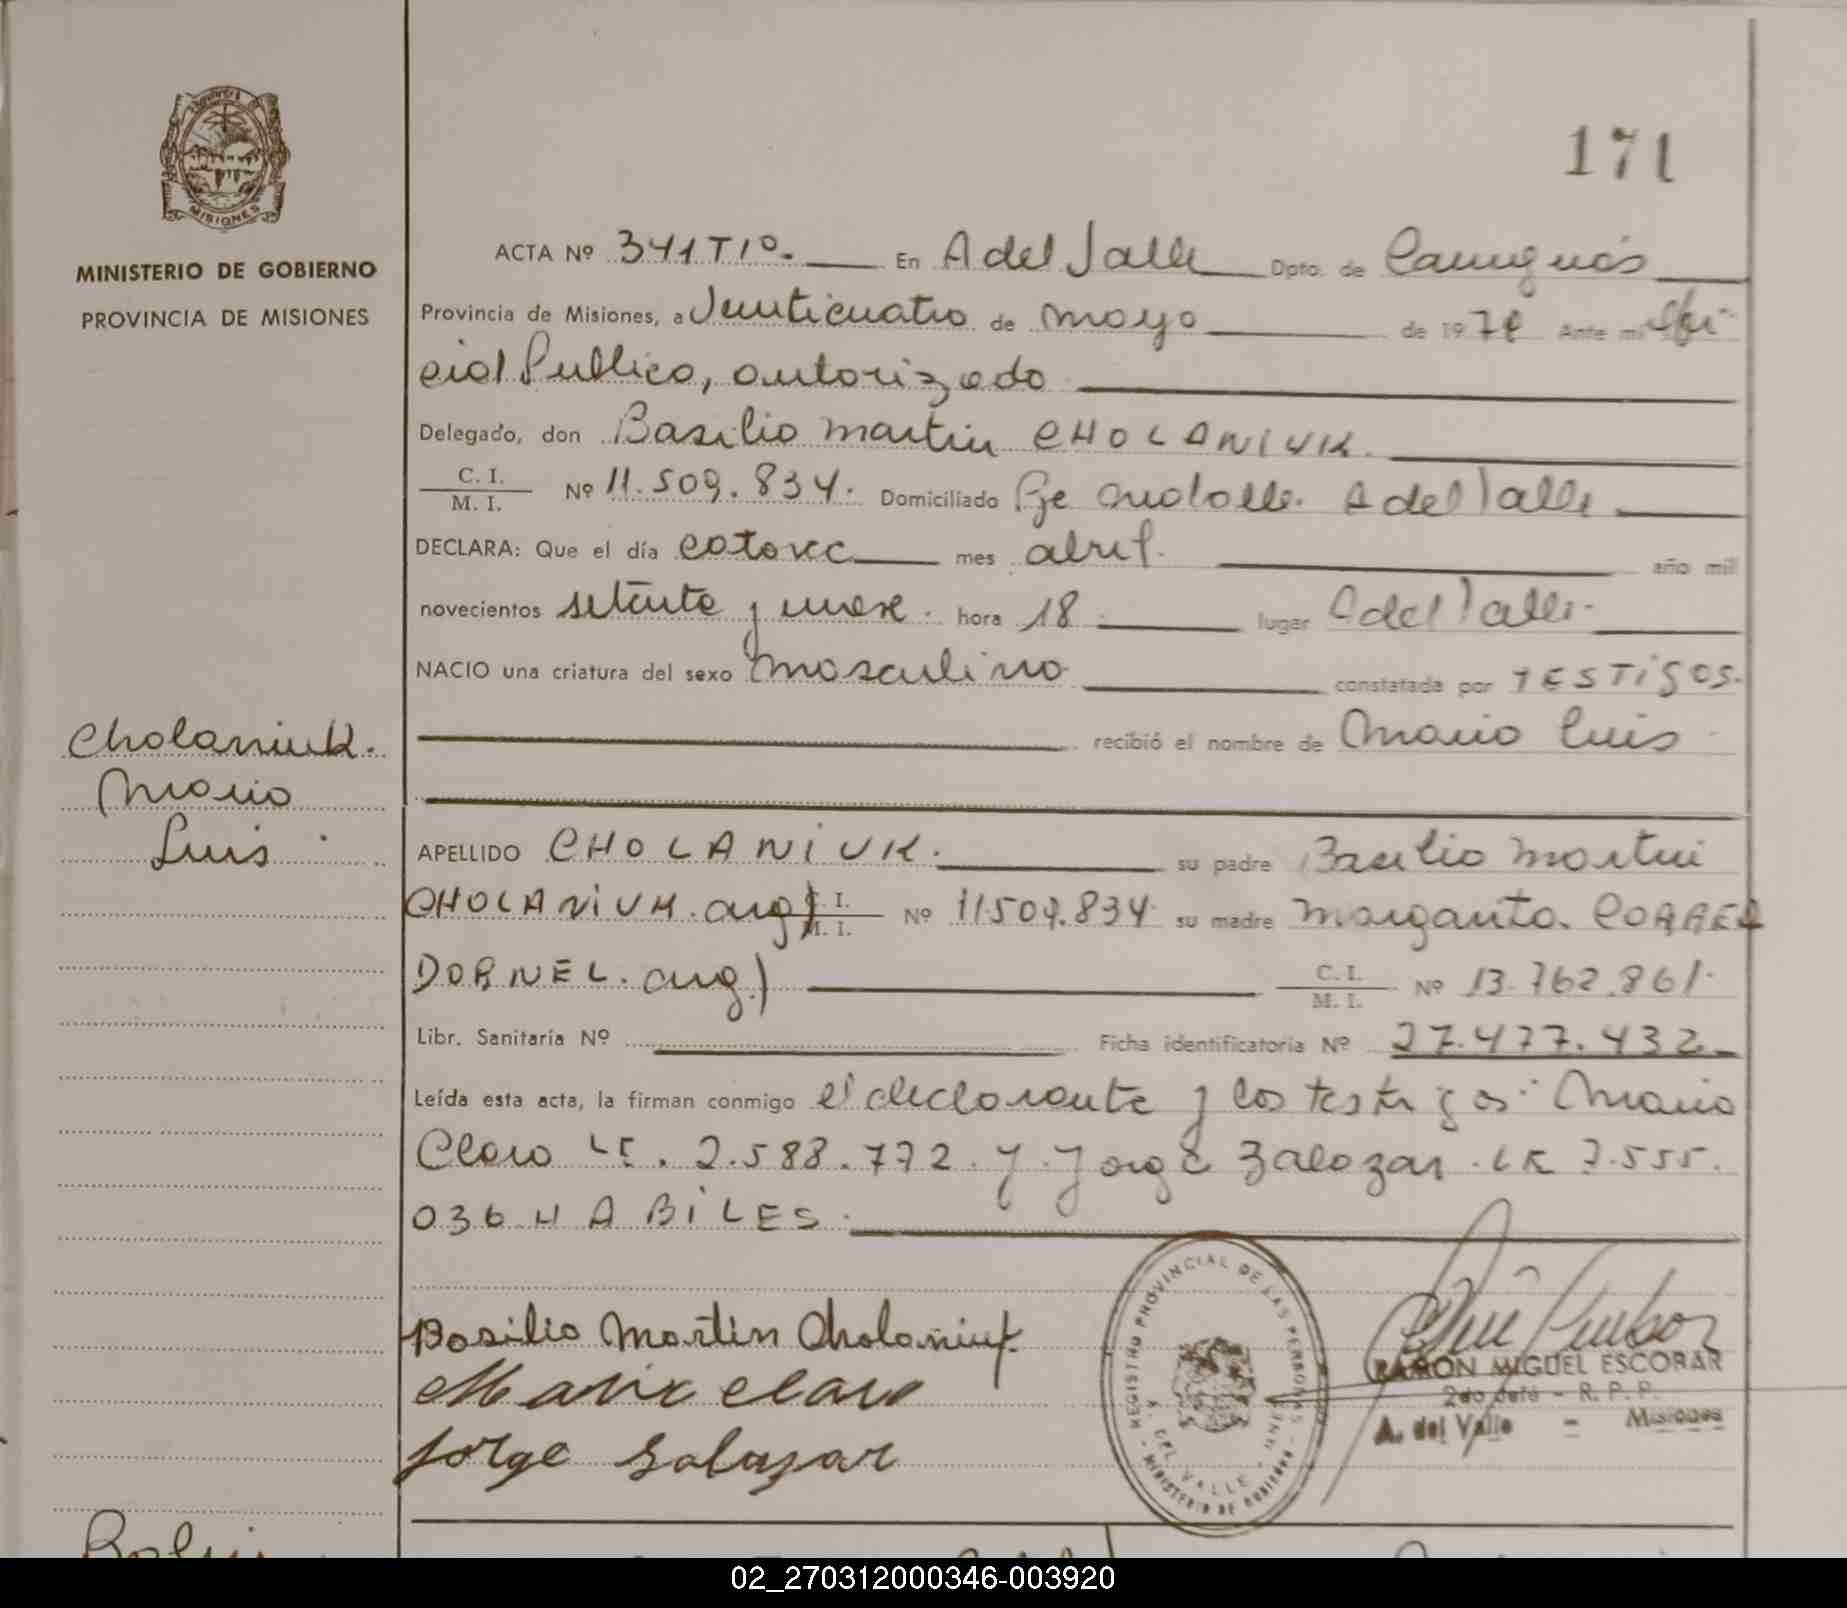 171
MISIONES
MINISTERIO DE GOBIERNO
PROVINCIA DE MISIONES
ACTA Nº 341 TIº. En A del Valle Dpto. de Cainguás
Provincia de Misiones, a Veinticuatro de mayo de 197 Ante mi Ofi
cial Publico, autorizado
Delegado, don Basilio Martin CHOLANIUK.
C. I.
M. I. Nº 11.509.834. Domiciliado A del Valle
DECLARA: Que el día catorce mes abril. año mil
novecientos setenta y hora 18 lugar A del Valle.
NACIO una criatura del sexo masculino constatada por TESTIGOS.
recibió el nombre de Mario Luis
Cholaniuk.
Mario
Luis
APELLIDO CHOLANIUK. su padre Basilio Martin
CHOLANIUK. arg) C. I.
M. I. Nº 11.509.834 su madre Margarita. CORREA
DORNEL. arg.) C. I.
M. I. Nº 13.762.861.
Libr. Sanitaria Nº Ficha identificatoria Nº 27.477.432
Leída esta acta, la firman conmigo el declarante y los testigos: Mario
Claro LE. 2.588.772. y Jorge Zalazar. LE 7.555.
036 HABILES.
Basilio Martin Cholaniuk
Claro
Jorge Salazar
REGISTRO PROVINCIAL DE LAS PERSONAS
A. DEL VALLE
MINISTERIO DE GOBIERNO
RAMON MIGUEL ESCOBAR
2do Jefe - R. P. P.
A. del Valle - Misiones
02_270312000346-003920